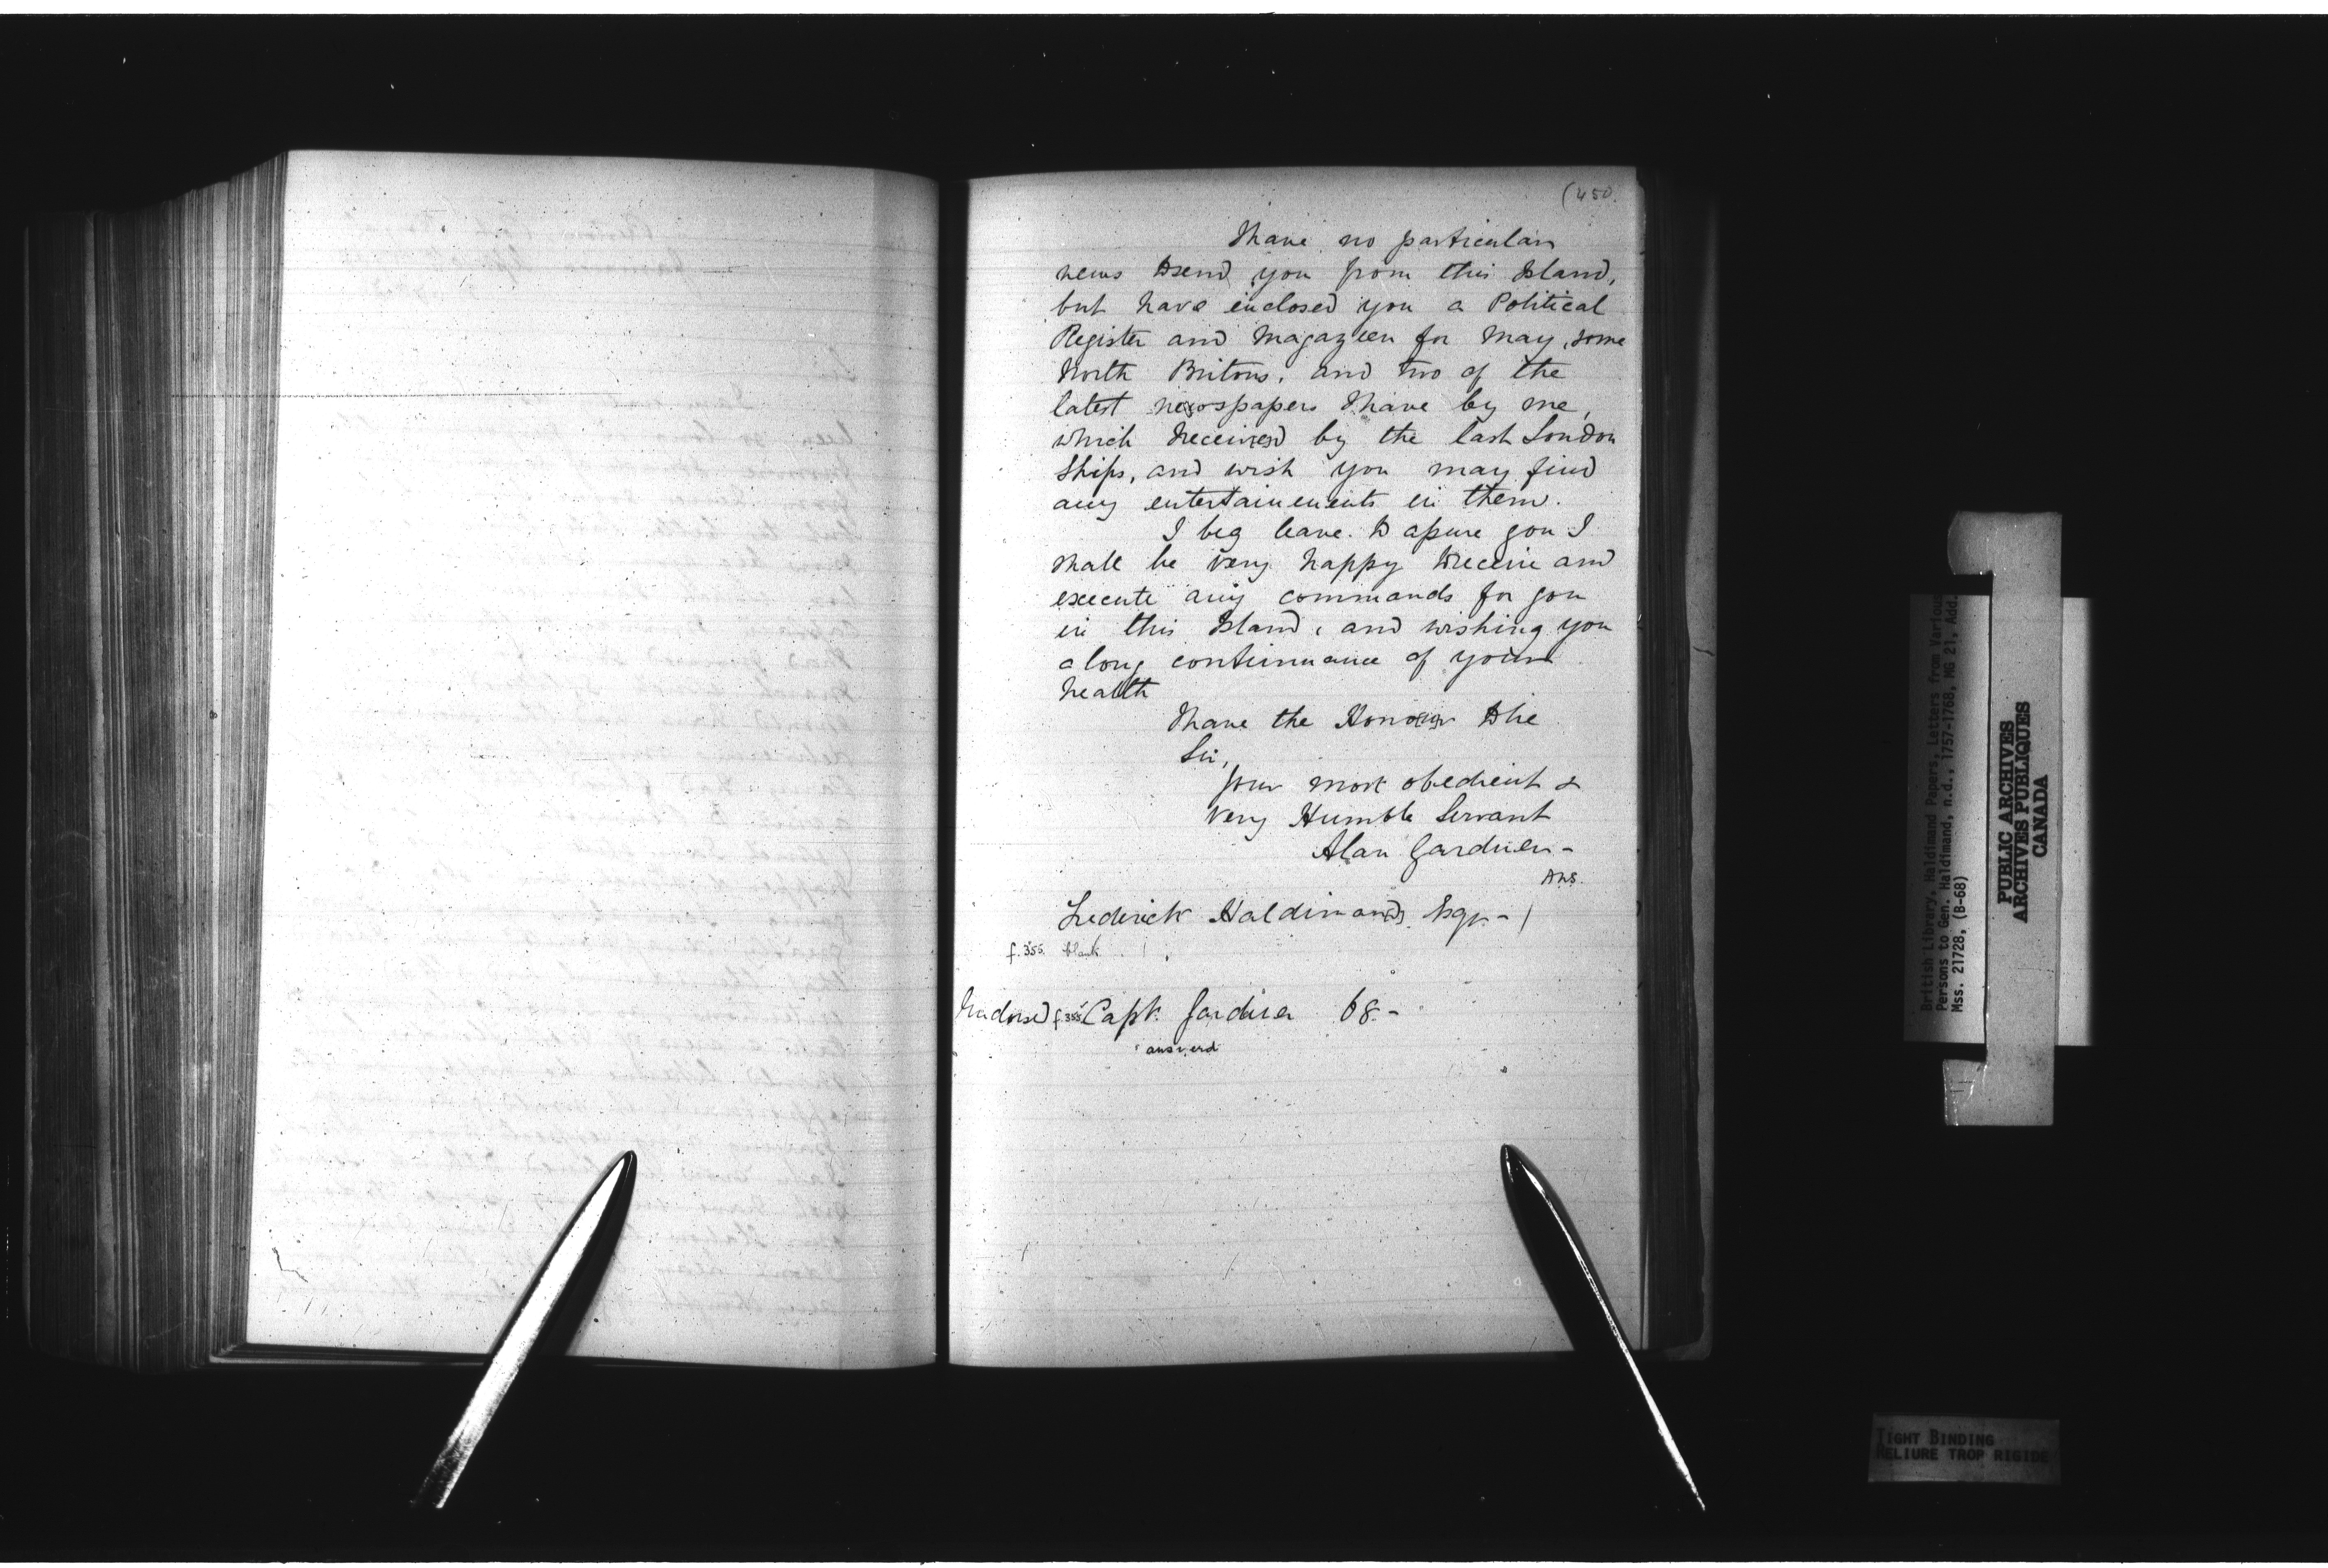 (450.
I have no particular
news to send you from this Island,
but have enclosed you a Political
Register and Magazeen for May, some
North Britons, and two of the
latest newspapers I have by me,
which I received by the last London
Ships, and wish you may find
any entertainements in them.
I beg leave to assure you I
shall be very happy to receive and
execute any commands for you
in this Island, and wishing you
a long continuance of your
health
I have the Honour to be
Sir,
Your most obedient &
very Humble Servant
Alan Gardner -
Ans.
Frederick Haldimand, Esqr. -
f. 355. blank
Endorsed f. 355 Capt. Gardner 68 -
answerd
British Library, Haldimand Papers, Letters from Various
Persons to Gen. Haldimand, n.d., 1757-1768, MG 21, Add.
Mss. 21728, (B-68)
PUBLIC ARCHIVES
ARCHIVES PUBLIQUES
CANADA
TIGHT BINDING
RELIURE TROP RIGIDE